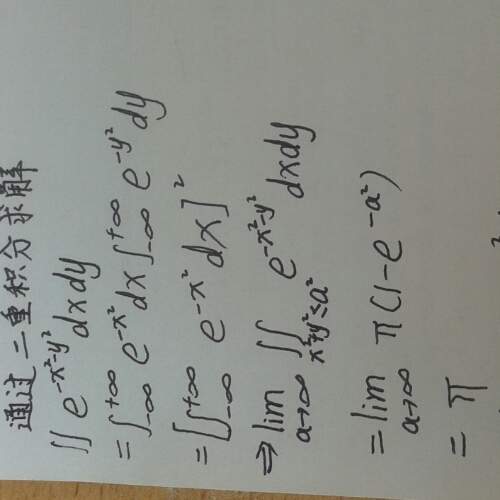 通过二重积分求解
∬ e^{-x²-y²} dxdy
= ∫_{-∞}^{+∞} e^{-x²} dx ∫_{-∞}^{+∞} e^{-y²} dy
= [∫_{-∞}^{+∞} e^{-x²} dx]²
⇒ lim_{a→∞} ∬_{x²+y²≤a²} e^{-x²-y²} dxdy
= lim_{a→∞} π(1-e^{-a²})
= π